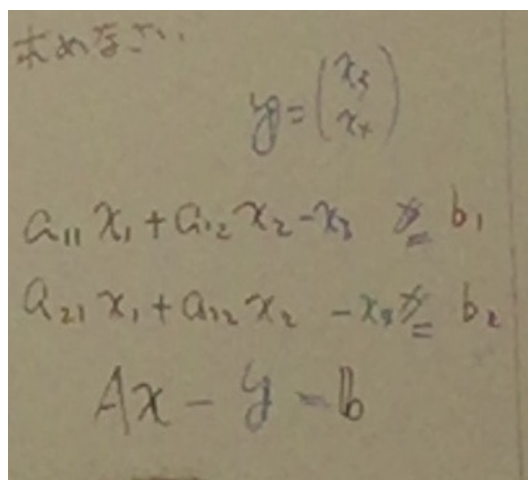 求めなさい.
y = (x₃
x₄)
a₁₁ x₁ + a₁₂ x₂ - x₃ = b₁
a₂₁ x₁ + a₂₂ x₂ - x₄ = b₂
Ax - y = b